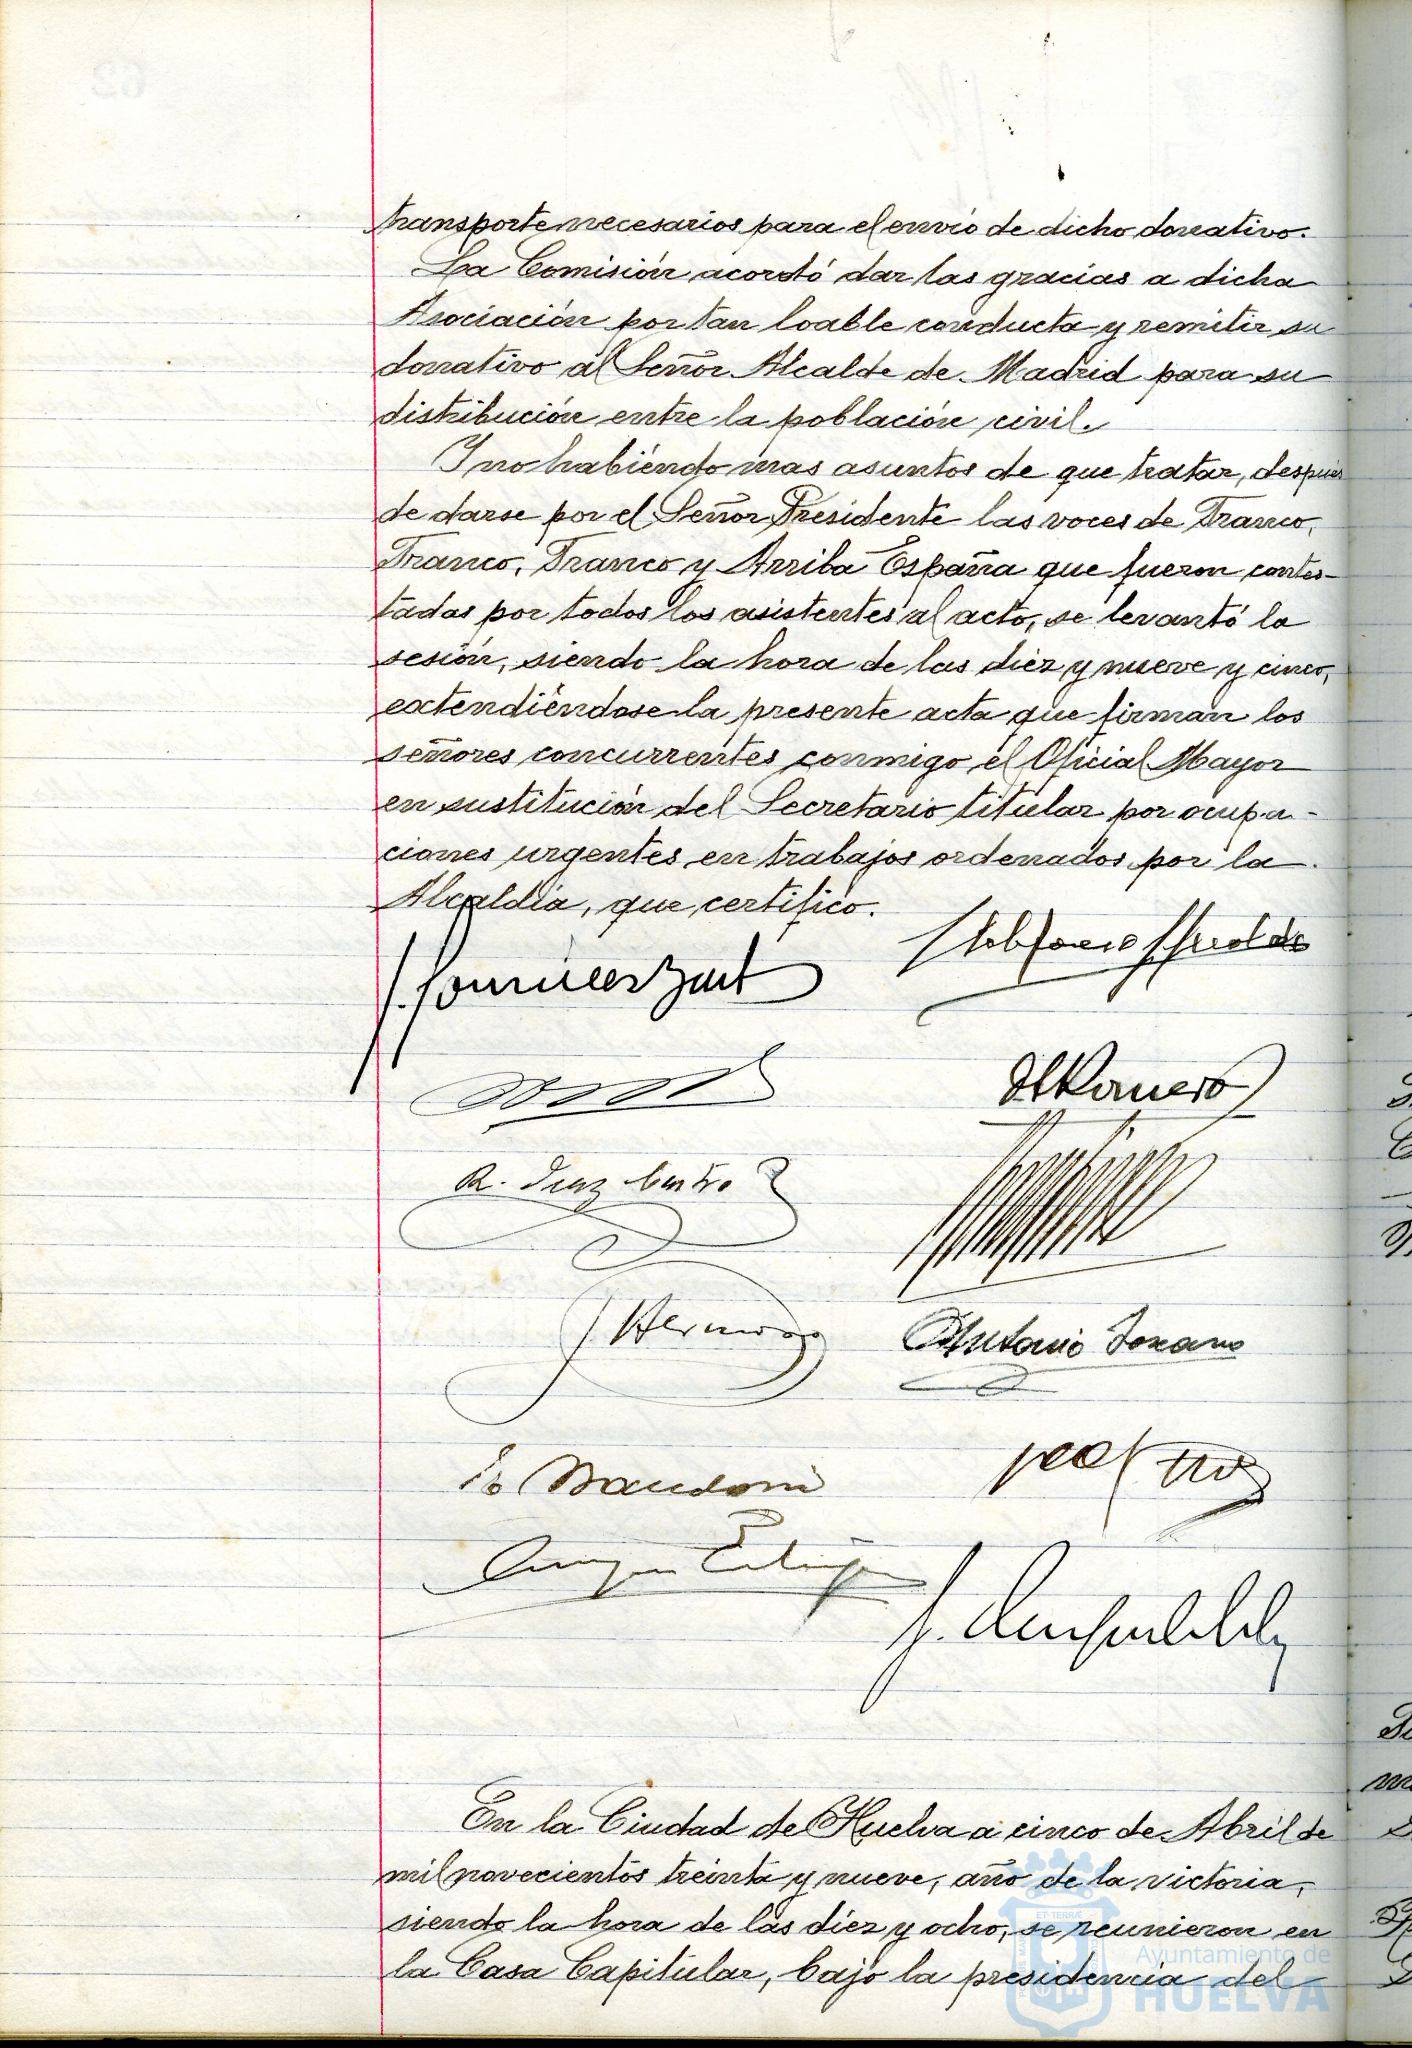 transporte necesarios para el envio de dicho donativo.
La Comisión acordó dar las gracias a dicha
Asociación por tan loable conducta y remitir su
donativo al Señor Alcalde de Madrid para su
distribución entre la población civil.
Y no habiéndo mas asuntos de que tratar, después
de darse por el Señor Presidente las voces de Franco,
Franco, Franco y Arriba España que fueron contes-
tadas por todos los asistentes al acto, se levantó la
sesión, siendo la hora de las diez y nueve y cinco,
extendiéndose la presente acta que firman los
señores concurrentes conmigo el Oficial Mayor
en sustitución del Secretario titular por ocupa-
ciones urgentes en trabajos ordenados por la
Alcaldía, que certifico.
Romero
R. Diaz
Antonio Lozano
En la Ciudad de Huelva a cinco de Abril de
mil novecientos treinta y nueve, año de la victoria,
siendo la hora de las diez y ocho, se reunieron en
la Casa Capitular, bajo la presidencia del
Ayuntamiento de
HUELVA